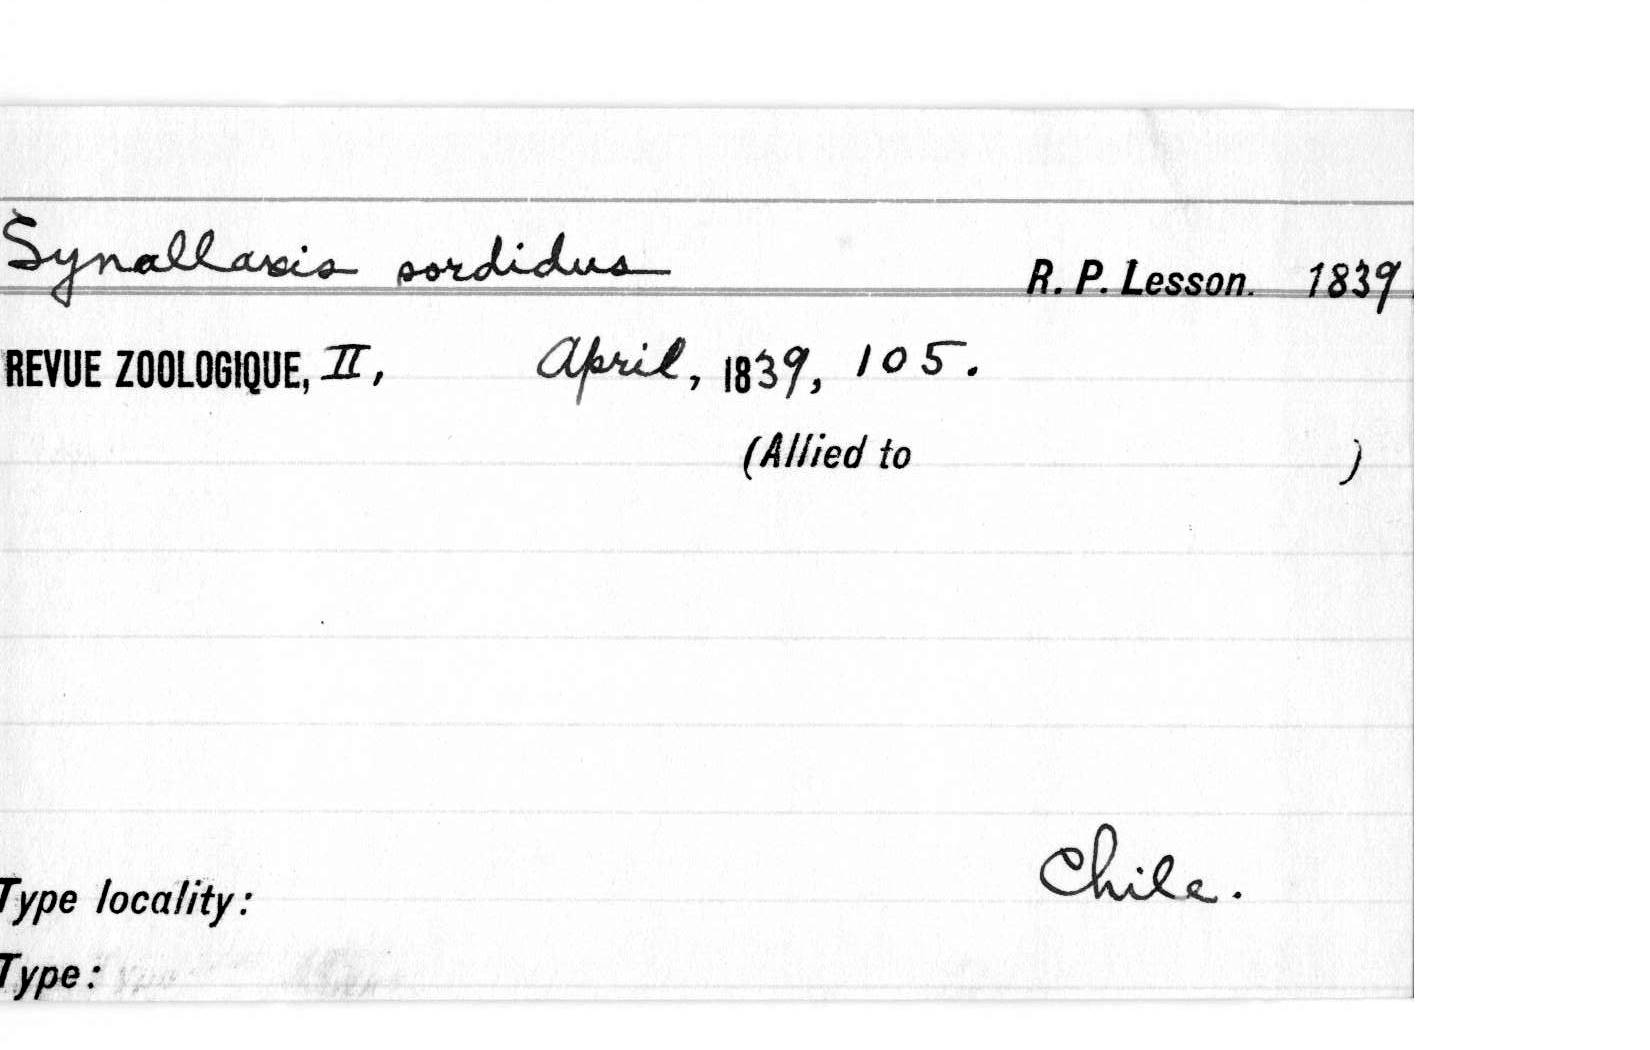 Synallaxis sordidus R. P. Lesson. 1839.
REVUE ZOOLOGIQUE, II, April, 1839, 105.
(Allied to )
Chile.
Type locality:
Type: